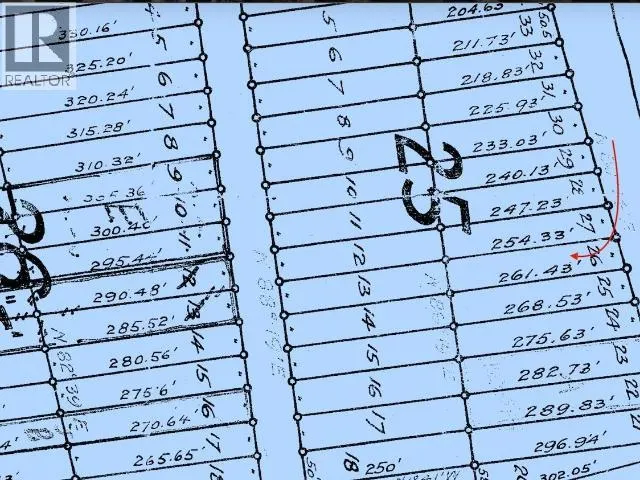 REALTOR
330.16'
325.20'
320.24'
315.28'
310.32'
300.4
295.44'
290.48'
285.52'
280.56'
275.6'
270.64'
265.65'
5
6
7
8
9
10
11
12
13
14
15
16
17
N 82° 39' E
5
6
7
8
9
10
11
12
13
14
15
16
17
18
250'
25
204.63'
211.73'
218.83'
225.93'
233.03'
240.13'
247.23'
254.33'
261.43'
268.53'
275.63'
282.73'
289.83'
296.94'
302.05'
33
32
31
30
29
28
27
26
25
24
23
22